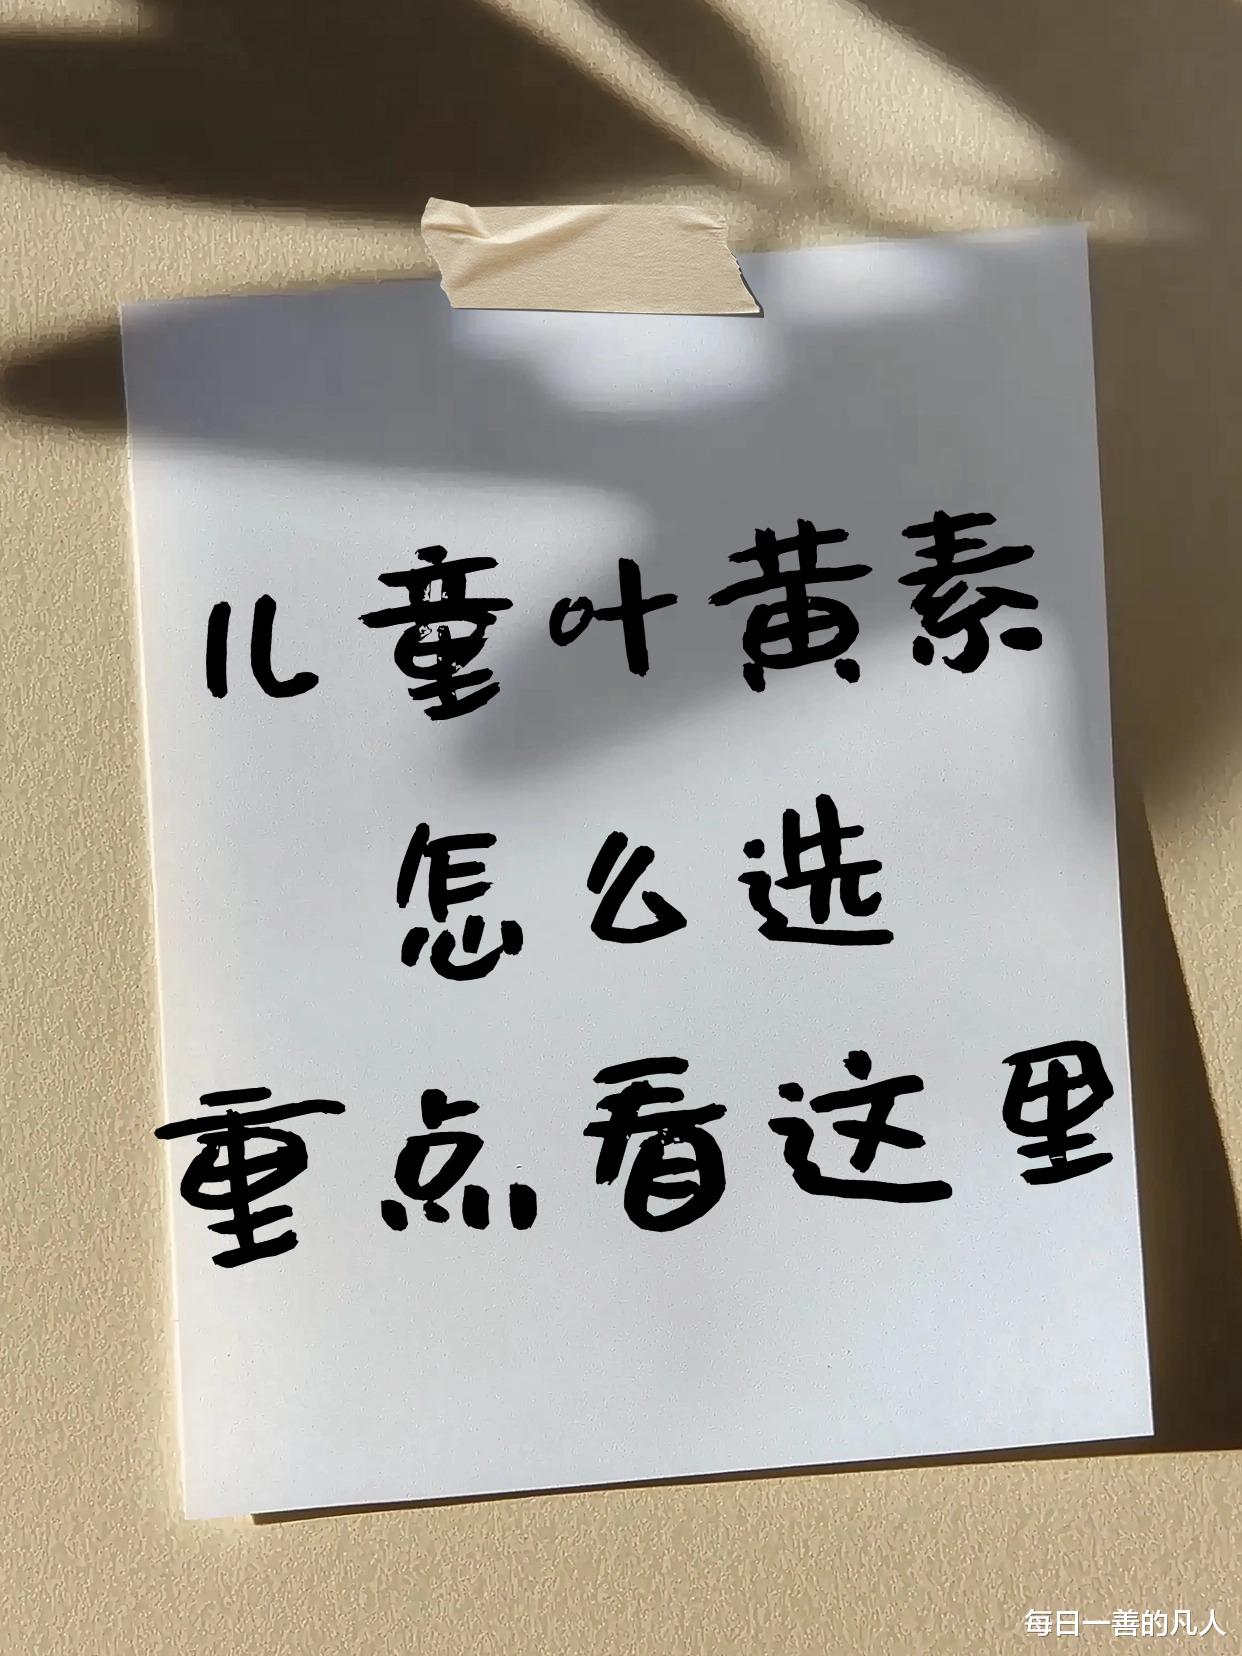 儿童叶黄素
怎么选
重点看这里
每日一善的凡人